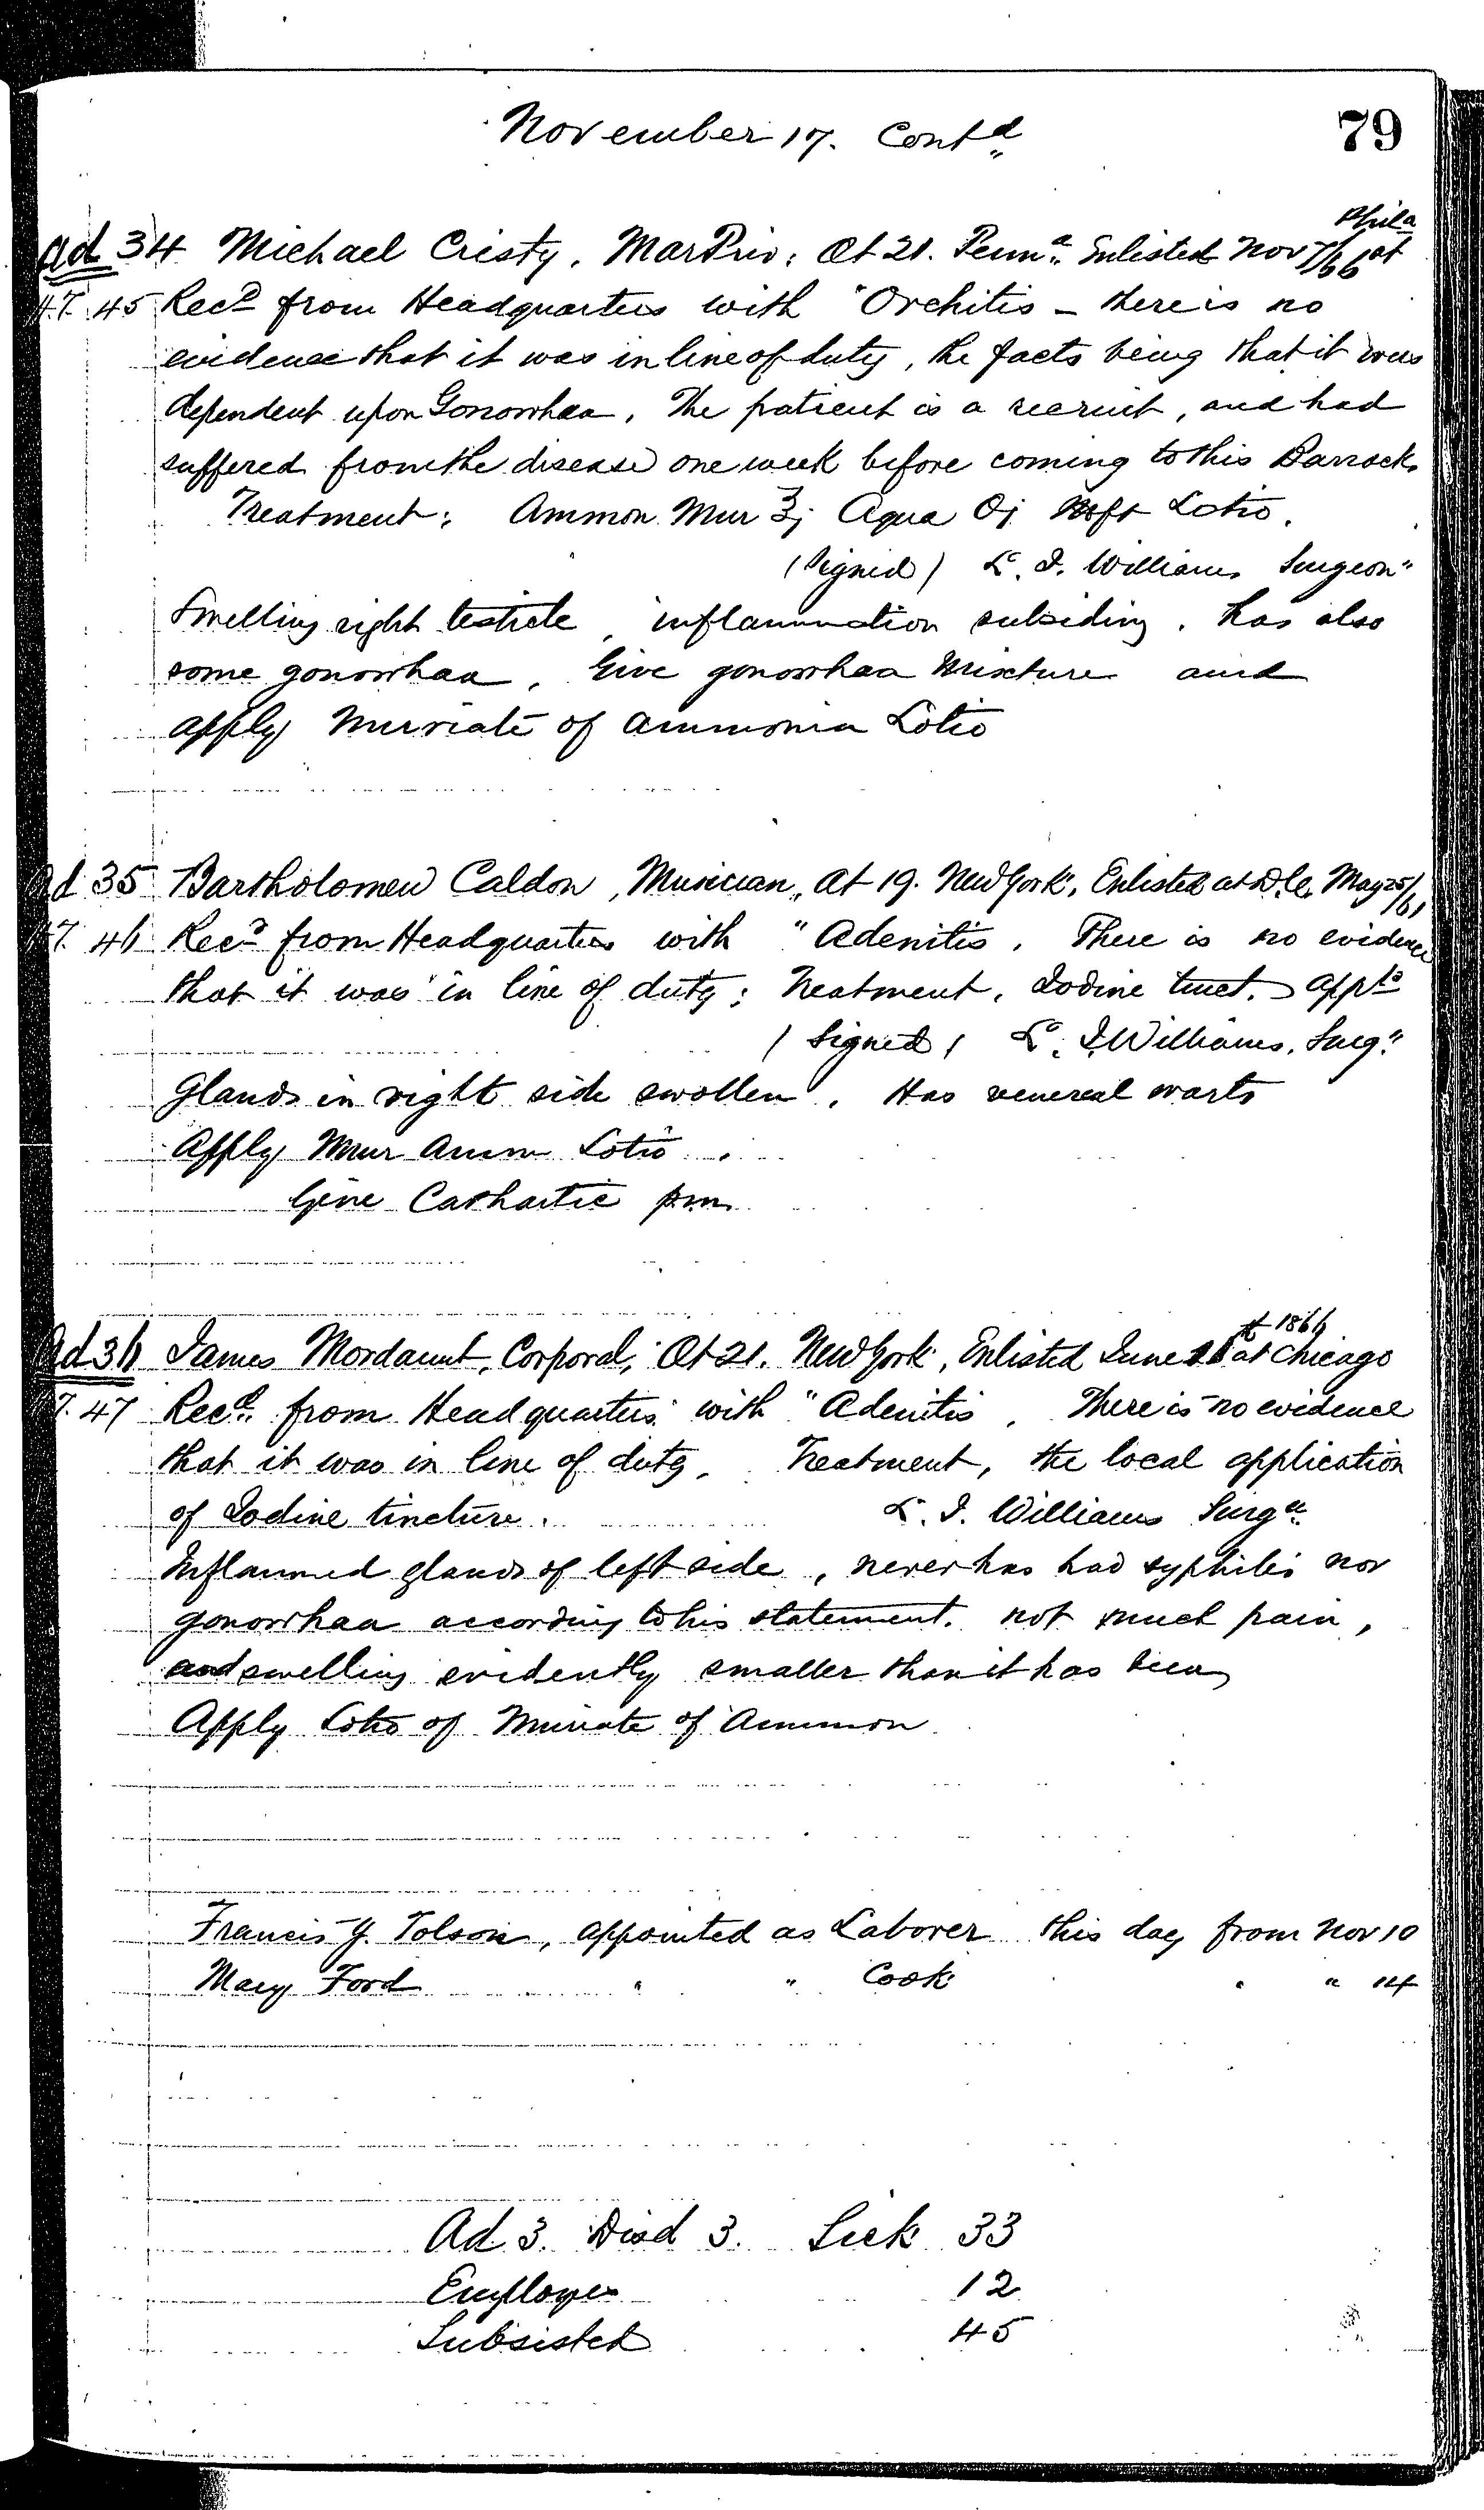 79
November 17. Contd
Phila
Ad 34 Michael Cristy, Mar Priv. Æt 21. Penna. Enlisted Nov 7/66 at
H.T. 45 Recd from Headquarters with "Orchitis - there is no
evidence that it was in line of duty, the facts being that it was
dependent upon Gonorrhœa. The patient is a recruit, and had
suffered from the disease one week before coming to this Barracks
Treatment: Ammon Mur ʒj Aqua Oj ft Lotio.
(Signed) L. J. Williams Surgeon"
Swelling right testicle, inflammation subsiding. has also
some gonorrhœa. Give gonorrhœa Mixture and
apply Muriate of ammonia Lotio
Ad 35 Bartholomew Caldon, Musician, Æt 19. New York, Enlisted at D.C. May 25/61
H.T. 46 Recd from Headquarters with "Adenitis. There is no evidence
that it was in line of duty; Treatment, Iodine tinct. appld
(Signed) L. J. Williams, Surg."
Glands in right side swollen. Has venereal warts
Apply Mur Amm Lotio.
Give Cathartic pm
1866
Ad 36 James Mordaunt, Corporal, Æt 21. New York, Enlisted June at Chicago
H.T. 47 Recd. from Headquarters with "Adenitis. There is no evidence
that it was in line of duty. Treatment, the local application
of Iodine tincture. L. J. Williams Surgn.
Inflammed glands of left side, never has had syphilis nor
gonorrhœa according to his statement. not much pain,
and swelling evidently smaller than it has been
Apply Lotio of Muriate of Ammon
Francis Y. Tolson, appointed as Laborer this day from Nov 10
Mary Ford " " Cook " " 14
Ad 3. Disd 3. Sick 33
Employes 12
Subsisted 45